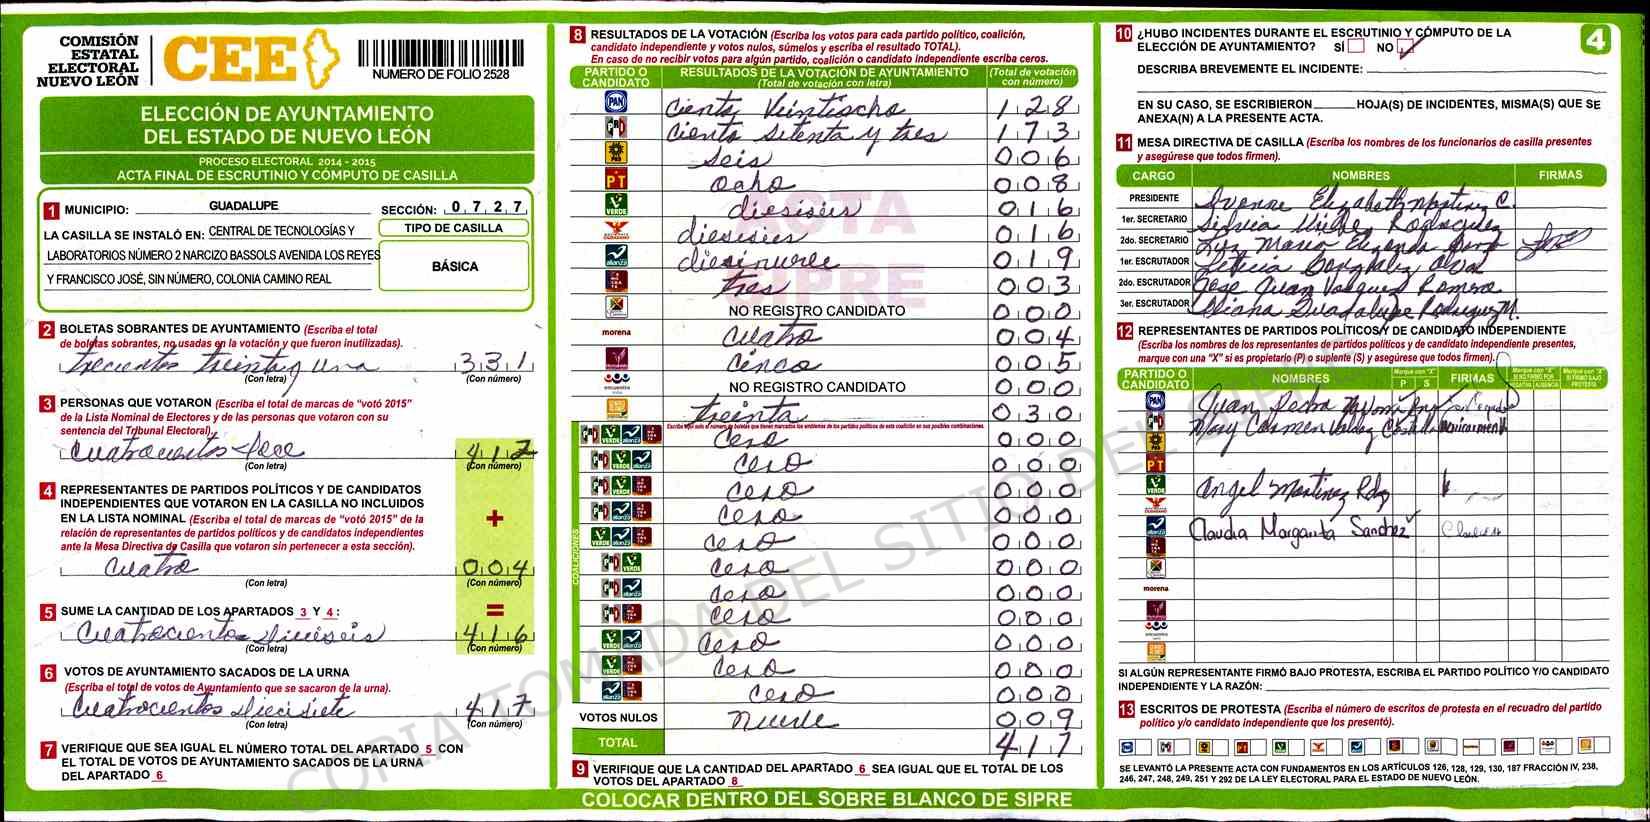 COMISIÓN
ESTATAL
ELECTORAL
NUEVO LEÓN
CEE
NUMERO DE FOLIO 2528
ELECCIÓN DE AYUNTAMIENTO
DEL ESTADO DE NUEVO LEÓN
PROCESO ELECTORAL 2014 - 2015
ACTA FINAL DE ESCRUTINIO Y CÓMPUTO DE CASILLA
1 MUNICIPIO: GUADALUPE SECCIÓN: 0 7 2 7
LA CASILLA SE INSTALÓ EN: CENTRAL DE TECNOLOGÍAS Y
LABORATORIOS NÚMERO 2 NARCIZO BASSOLS AVENIDA LOS REYES
Y FRANCISCO JOSÉ, SIN NÚMERO, COLONIA CAMINO REAL
TIPO DE CASILLA
BÁSICA
2 BOLETAS SOBRANTES DE AYUNTAMIENTO (Escriba el total
de boletas sobrantes, no usadas en la votación y que fueron inutilizadas).
trecientos treinta y una 3 3 1
(Con letra) (Con número)
3 PERSONAS QUE VOTARON (Escriba el total de marcas de "votó 2015"
de la Lista Nominal de Electores y de las personas que votaron con su
sentencia del Tribunal Electoral).
Cuatrocientos doce 4 1 2
(Con letra) (Con número)
4 REPRESENTANTES DE PARTIDOS POLÍTICOS Y DE CANDIDATOS
INDEPENDIENTES QUE VOTARON EN LA CASILLA NO INCLUIDOS
EN LA LISTA NOMINAL (Escriba el total de marcas de "votó 2015" de la
relación de representantes de partidos políticos y de candidatos independientes
ante la Mesa Directiva de Casilla que votaron sin pertenecer a esta sección).
+
Cuatro 0 0 4
(Con letra) (Con número)
5 SUME LA CANTIDAD DE LOS APARTADOS 3 Y 4 : =
Cuatrocientos dieciseis 4 1 6
(Con letra) (Con número)
6 VOTOS DE AYUNTAMIENTO SACADOS DE LA URNA
(Escriba el total de votos de Ayuntamiento que se sacaron de la urna).
Cuatrocientos diecisiete 4 1 7
(Con letra) (Con número)
7 VERIFIQUE QUE SEA IGUAL EL NÚMERO TOTAL DEL APARTADO 5 CON
EL TOTAL DE VOTOS DE AYUNTAMIENTO SACADOS DE LA URNA
DEL APARTADO 6
8 RESULTADOS DE LA VOTACIÓN (Escriba los votos para cada partido político, coalición,
candidato independiente y votos nulos, súmelos y escriba el resultado TOTAL).
En caso de no recibir votos para algún partido, coalición o candidato independiente escriba ceros.
PARTIDO O CANDIDATO RESULTADOS DE LA VOTACIÓN DE AYUNTAMIENTO (Total de votación con letra) (Total de votación con número)
PAN Ciento Veintiocho 1 2 8
PRD Ciento setenta y tres 1 7 3
PRD seis 0 0 6
PT Ocho 0 0 8
VERDE diesiseis 0 1 6
diesiseis 0 1 6
alianza diesinueve 0 1 9
tres 0 0 3
NO REGISTRO CANDIDATO 0 0 0
morena cuatro 0 0 4
cinco 0 0 5
encuentro NO REGISTRO CANDIDATO 0 0 0
treinta 0 3 0
Escriba aquí solo el número de boletas que tienen marcados los emblemas de los partidos políticos de esta coalición en sus posibles combinaciones.
COALICIONES
cero 0 0 0
cero 0 0 0
cero 0 0 0
cero 0 0 0
cero 0 0 0
cero 0 0 0
cero 0 0 0
cero 0 0 0
cero 0 0 0
cero 0 0 0
cero 0 0 0
VOTOS NULOS nueve 0 0 9
TOTAL 4 1 7
9 VERIFIQUE QUE LA CANTIDAD DEL APARTADO 6 SEA IGUAL QUE EL TOTAL DE LOS
VOTOS DEL APARTADO 8
ACTA
SIPRE
COPIA TOMADA DEL SITIO DEL SIPRE
10 ¿HUBO INCIDENTES DURANTE EL ESCRUTINIO Y CÓMPUTO DE LA
ELECCIÓN DE AYUNTAMIENTO? SÍ NO
4
DESCRIBA BREVEMENTE EL INCIDENTE:
EN SU CASO, SE ESCRIBIERON HOJA(S) DE INCIDENTES, MISMA(S) QUE SE
ANEXA(N) A LA PRESENTE ACTA.
11 MESA DIRECTIVA DE CASILLA (Escriba los nombres de los funcionarios de casilla presentes
y asegúrese que todos firmen).
CARGO NOMBRES FIRMAS
PRESIDENTE Ivonne Elizabeth Martinez C.
1er. SECRETARIO Silvia Rodriguez
2do. SECRETARIO Luz Maria Elizondo
1er. ESCRUTADOR Leticia Gonzalez
2do. ESCRUTADOR Jose Juan Vasquez Romero
3er. ESCRUTADOR Diana Guadalupe Rodriguez M.
12 REPRESENTANTES DE PARTIDOS POLÍTICOS Y DE CANDIDATO INDEPENDIENTE
(Escriba los nombres de los representantes de partidos políticos y de candidato independiente presentes,
marque con una "X" si es propietario (P) o suplente (S) y asegúrese que todos firmen).
PARTIDO O CANDIDATO NOMBRES Marque con "X" P S FIRMAS Marque con "X" SI NO FIRMÓ POR NEGATIVA AUSENCIA Marque con "X" SI FIRMÓ BAJO PROTESTA
PAN Juan Pedro
Mary Carmen Valdez
PT
VERDE Angel Martinez Rdz
alianza Claudia Margarita Sanchez
morena
encuentro
SI ALGÚN REPRESENTANTE FIRMÓ BAJO PROTESTA, ESCRIBA EL PARTIDO POLÍTICO Y/O CANDIDATO
INDEPENDIENTE Y LA RAZÓN:
13 ESCRITOS DE PROTESTA (Escriba el número de escritos de protesta en el recuadro del partido
político y/o candidato independiente que los presentó).
SE LEVANTÓ LA PRESENTE ACTA CON FUNDAMENTOS EN LOS ARTÍCULOS 126, 128, 129, 130, 187 FRACCIÓN IV, 238,
246, 247, 248, 249, 251 Y 292 DE LA LEY ELECTORAL PARA EL ESTADO DE NUEVO LEÓN.
COLOCAR DENTRO DEL SOBRE BLANCO DE SIPRE